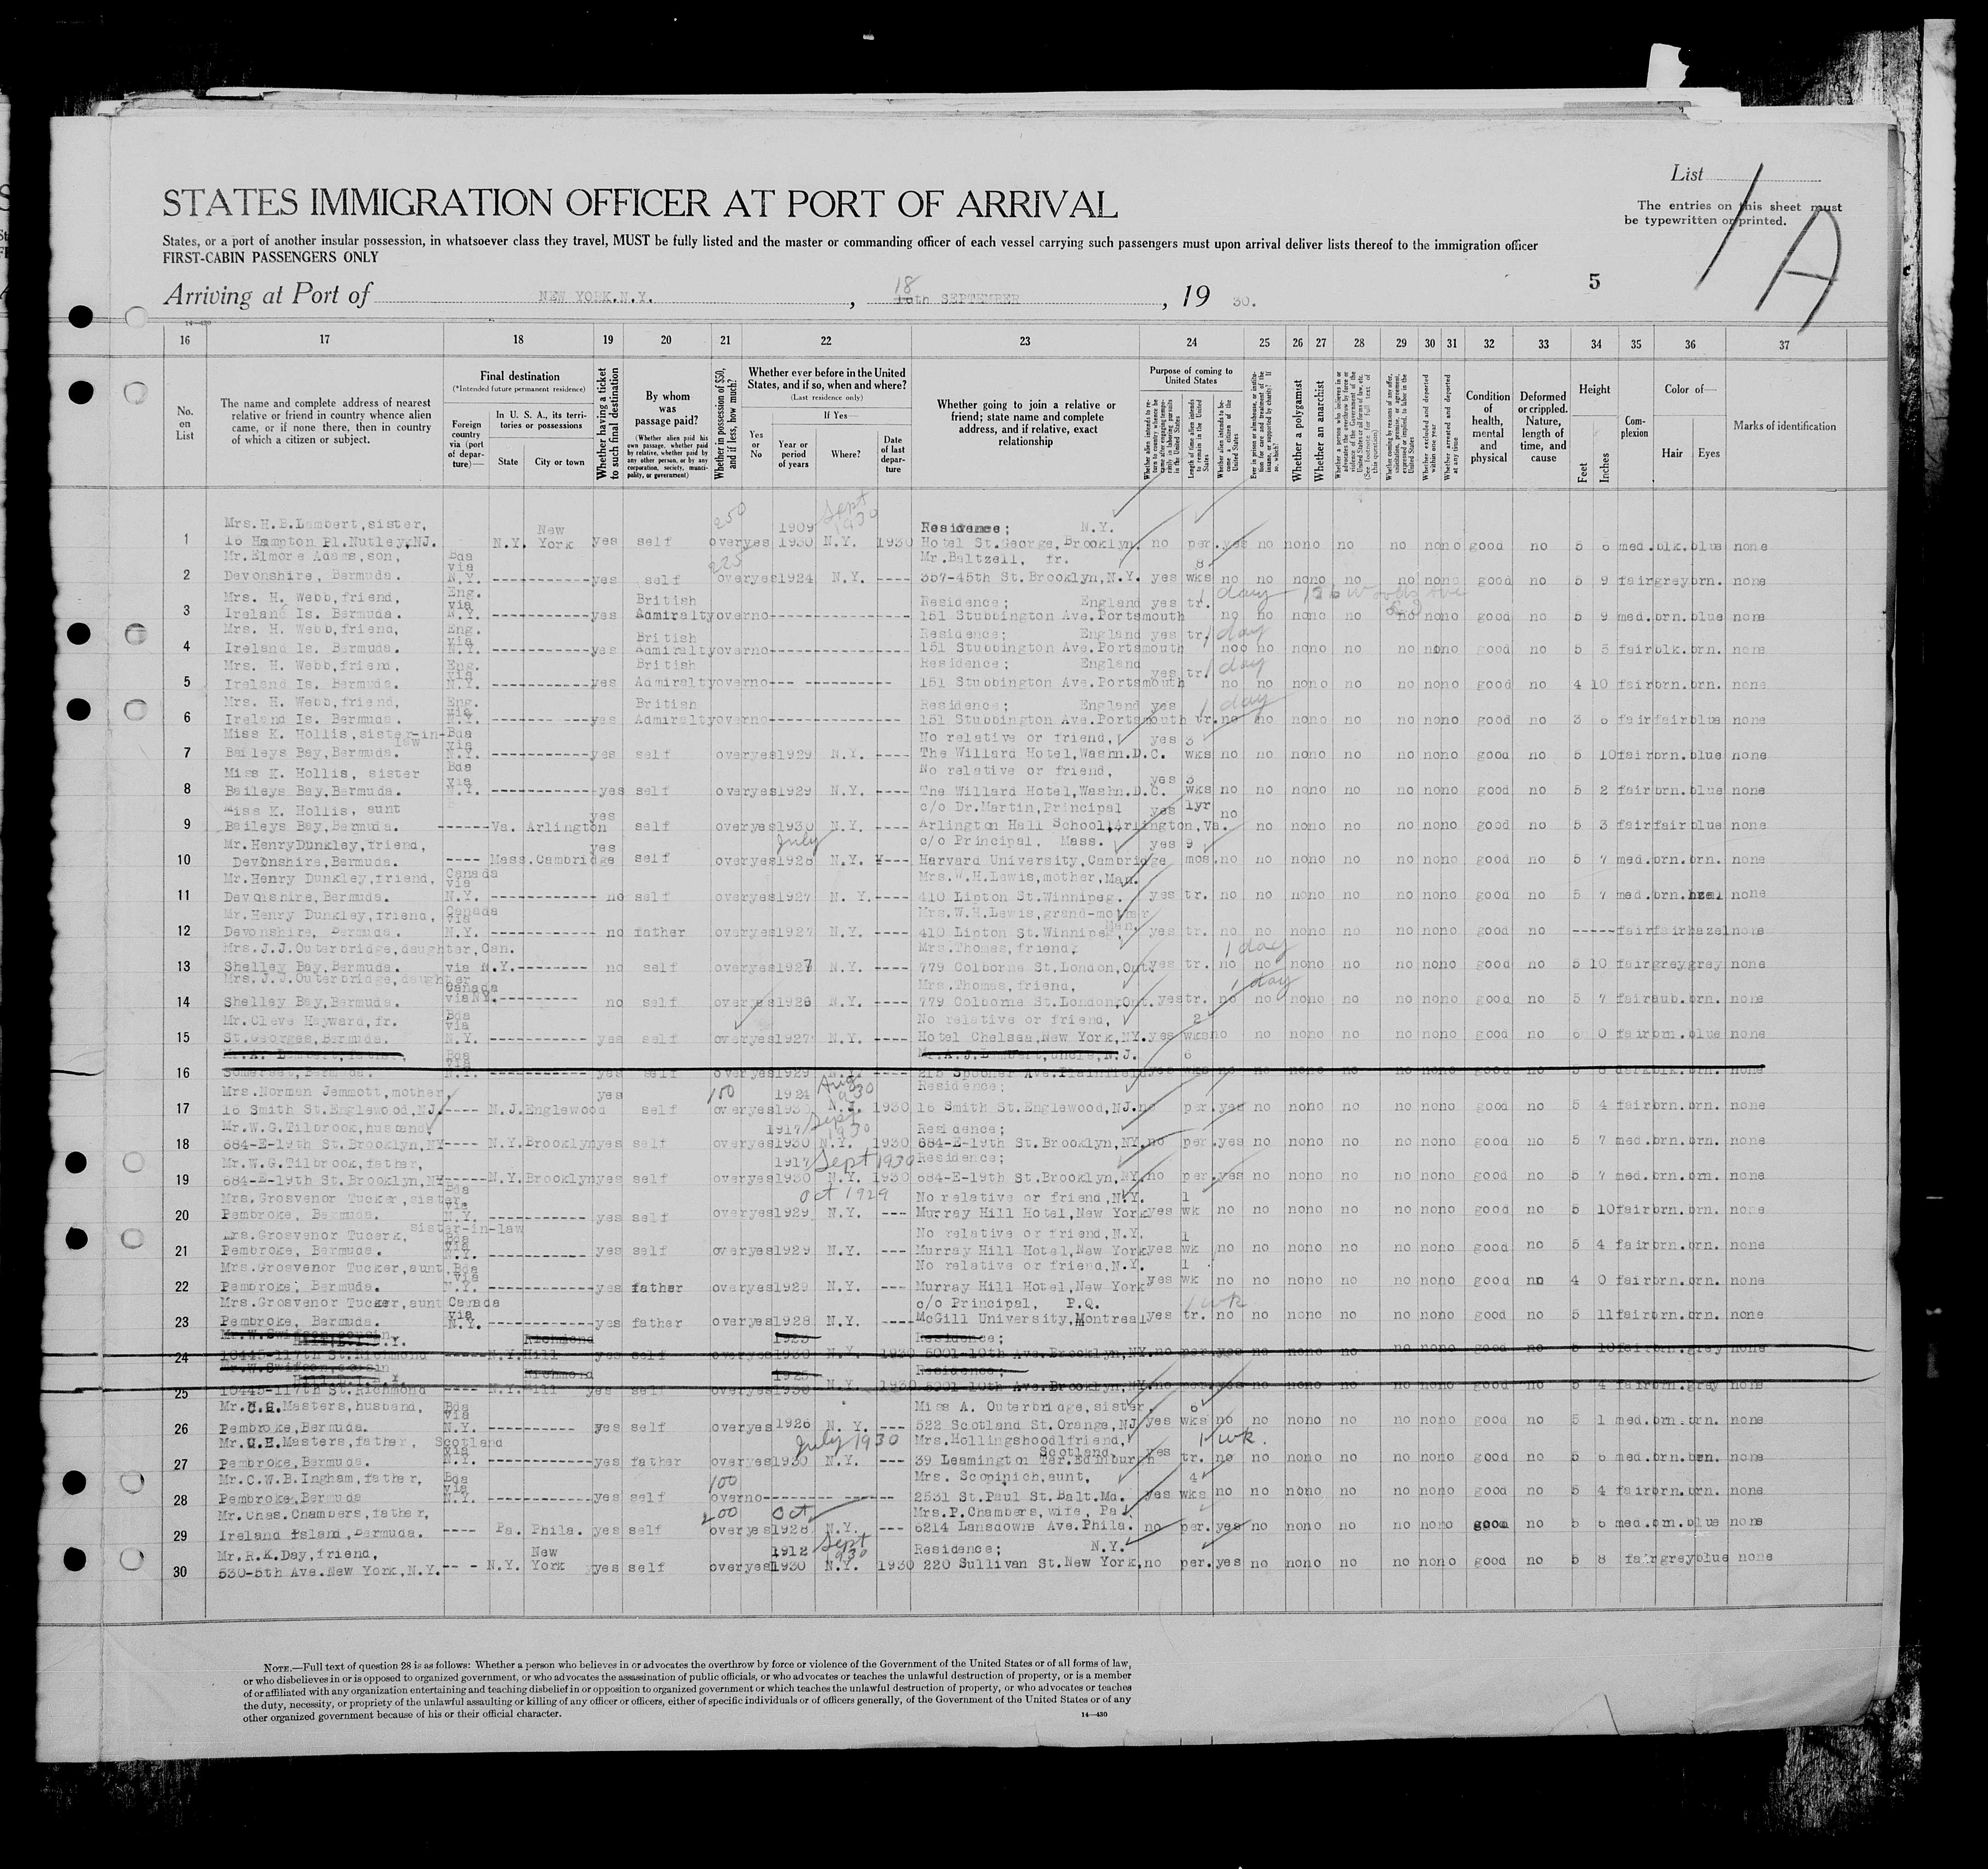 List
1 A
The entries on this sheet must
be typewritten or printed.
STATES IMMIGRATION OFFICER AT PORT OF ARRIVAL
States, or a port of another insular possession, in whatsoever class they travel, MUST be fully listed and the master or commanding officer of each vessel carrying such passengers must upon arrival deliver lists thereof to the immigration officer
FIRST-CABIN PASSENGERS ONLY
5
Arriving at Port of NEW YORK.N.Y. , 18 th SEPTEMBER , 19 30.
14-430
16 17 18 19 20 21 22 23 24 25 26 27 28 29 30 31 32 33 34 35 36 37
No. on List
The name and complete address of nearest relative or friend in country whence alien came, or if none there, then in country of which a citizen or subject.
Final destination
(*Intended future permanent residence)
Foreign country via (port of departure)—
In U. S. A., its territories or possessions
State
City or town
Whether having a ticket to such final destination
By whom was passage paid?
(Whether alien paid his own passage, whether paid by relative, whether paid by any other person, or by any corporation, society, municipality, or government)
Whether in possession of $50, and if less, how much?
Whether ever before in the United States, and if so, when and where?
(Last residence only)
Yes or No
If Yes—
Year or period of years
Where?
Date of last departure
Whether going to join a relative or friend; state name and complete address, and if relative, exact relationship
Purpose of coming to United States
Length of time alien intends to remain in the United States
Whether alien intends to become a citizen of the United States
Whether a polygamist
Whether an anarchist
(See footnote for full text of this question)
Whether excluded and deported within one year
Whether arrested and deported at any time
Condition of health, mental and physical
Deformed or crippled. Nature, length of time, and cause
Height
Feet
Inches
Complexion
Color of—
Hair
Eyes
Marks of identification
Mrs.H.B.Lambert,sister, New 250 1909 Sept 1930 Residence; N.Y.
1 16 Hampton Pl.Nutley,NJ. N.Y. York yes self over yes 1930 N.Y. 1930 Hotel St.George,Brooklyn. no per. yes no no no no no no no good no 5 6 med. blk. blue none
Mr.Elmore Adams,son, Bda via 225 Mr.Baltzell, fr. 8
2 Devonshire, Bermuda. N.Y. ---------- yes self over yes 1924 N.Y. ---- 357-45th St.Brooklyn,N.Y. yes wks no no no no no no no no good no 5 9 fair grey brn. none
Mrs. H. Webb,friend, Eng. via British Residence; England yes tr. 1 day
3 Ireland Is. Bermuda. N.Y. ---------- yes Admiralty over no ---------- 151 Stubbington Ave.Portsmouth no no no no no no no no good no 5 9 med. brn. blue none
Mrs. H. Webb,friend, Eng. via British Residence; England yes tr. 1 day
4 Ireland Is. Bermuda. N.Y. ---------- yes Admiralty over no ---------- 151 Stubbington Ave.Portsmouth no no no no no no no no good no 5 5 fair blk. brn. none
Mrs. H. Webb,friend, Eng. via British Residence; England yes tr. 1 day
5 Ireland Is. Bermuda. N.Y. ---------- yes Admiralty over no ---------- 151 Stubbington Ave.Portsmouth no no no no no no no no good no 4 10 fair brn. brn. none
Mrs. H. Webb,friend, Eng. via British Residence; England yes 1 day
6 Ireland Is. Bermuda. N.Y. ---------- yes Admiralty over no ---------- 151 Stubbington Ave.Portsmouth tr. no no no no no no no no good no 3 6 fair fair blue none
Miss K. Hollis,sister-in-law Bda via No relative or friend, yes 3
7 Baileys Bay,Bermuda. N.Y. ---------- yes self over yes 1929 N.Y. ---- The Willard Hotel,Washn.D.C. wks no no no no no no no no good no 5 10 fair brn. blue none
Miss K. Hollis, sister Bda via No relative or friend, yes 3
8 Baileys Bay,Bermuda. N.Y. ---------- yes self over yes 1929 N.Y. ---- The Willard Hotel,Washn.D.C. wks no no no no no no no no good no 5 2 fair brn. blue none
Miss K. Hollis, aunt yes c/o Dr.Martin,Principal yes 1yr no
9 Baileys Bay,Bermuda. ------ Va. Arlington self over yes 1930 N.Y. ---- Arlington Hall School,Arlington,Va. no no no no no no no good no 5 3 fair fair blue none
Mr.HenryDunkley,friend, yes July c/o Principal, Mass. yes 9
10 Devonshire,Bermuda. ---- Mass. Cambridge self over yes 1928 N.Y. ---- Harvard University,Cambridge mos. no no no no no no no no good no 5 7 med. brn. brn. none
Mr.Henry Dunkley,friend, Canada via Mrs.W.H.Lewis,mother,Man.
11 Devonshire,Bermuda. N.Y. ---------- no self over yes 1927 N. Y. ---- 410 Lipton St.Winnipeg. yes tr. no no no no no no no no good no 5 7 med. brn. hzel none
Mr.Henry Dunkley,friend, Canada via Mrs.W.H.Lewis,grand-mother Man.
12 Devonshire, Bermuda. N.Y. ---------- no father over yes 1927 N.Y. ---- 410 Lipton St.Winnipeg, yes tr. no no no no no no no no good no ----- fair fair hazel none
Mrs.J.J.Outerbridge,daughter,Can. Mrs.Thomas,friend, 1 day
13 Shelley Bay,Bermuda. via N.Y. --------- no self over yes 1927 N.Y. ---- 779 Colborne St.London,Ont. yes tr. no no no no no no no no good no 5 10 fair grey grey none
Mrs.J.J.Outerbridge,daughter Canada Mrs.Thomas,friend, 1 day
14 Shelley Bay,Bermuda. via NY. ---------- no self over yes 1926 N.Y. ---- 779 Colborne St.London,Ont. yes tr. no no no no no no no no good no 5 7 fair aub. brn. none
Mr.Cleve Hayward,fr. Bda via No relative or friend, 2
15 St.Georges,Bermuda. N.Y. ---------- yes self over yes 1927 N.Y. ---- Hotel Chelsea,New York,NY. yes wks no no no no no no no no good no 6 0 fair brn. blue none
Bda via Mr.A.J.Lambert,uncle,N.J. 6
16 Somerset, Bermuda. N.Y. ---------- yes self over yes 1929 N.Y. ---- 215 Spooner Ave.Plainfield yes wks no no no no no no no no good no 5 8 dark blk. brn. none
Mrs.Norman Jemmott,mother, yes 100 1924 Aug 1930 Residence;
17 16 Smith St.Englewood,NJ. ---- N.J. Englewood self over yes 1930 N.J. 1930 16 Smith St.Englewood,NJ. no per. yes no no no no no no no good no 5 4 fair brn. brn. none
Mr.W.G.Tilbrook,husband, 1917 Sept 1930 Residence;
18 684-E-19th St.Brooklyn,NY ---- N.Y. Brooklyn yes self over yes 1930 N.Y. 1930 684-E-19th St.Brooklyn,NY. no per. yes no no no no no no no good no 5 7 med. brn. brn. none
Mr.W.G.Tilbrook,father, 1917 Sept 1930 Residence;
19 684-E-19th St.Brooklyn,NY ----- N.Y. Brooklyn yes self over yes 1930 N.Y. 1930 684-E-19th St.Brooklyn,NY. no per. yes no no no no no no no good no 5 7 med. brn. brn. none
Mrs.Grosvenor Tucker,sister Bda via Oct 1929 No relative or friend,N.Y. 1
20 Pembroke, Bermuda. N.Y. ---------- yes self over yes 1929 N.Y. ---- Murray Hill Hotel,New York yes wk no no no no no no no no good no 5 10 fair brn. brn. none
Mrs.Grosvenor Tucerk, sister-in-law Bda via No relative or friend,N.Y. 1
21 Pembroke, Bermuda. N.Y. ---------- yes self over yes 1929 N.Y. ---- Murray Hill Hotel,New York yes wk no no no no no no no no good no 5 4 fair brn. brn. none
Mrs.Grosvenor Tucker,aunt,Bda via No relative or friend,N.Y. 1
22 Pembroke, Bermuda. N.Y. ---------- yes father over yes 1929 N.Y. ---- Murray Hill Hotel,New York yes wk no no no no no no no no good no 4 0 fair brn. brn. none
Mrs.Grosvenor Tucker,aunt Canada via c/o Principal, P.Q. 1 wk
23 Pembroke, Bermuda. N.Y. ---------- yes father over yes 1928 N.Y. ---- McGill University,Montreal yes tr. no no no no no no no no good no 5 11 fair brn. brn. none
Richmond 1923 Residence;
24 10445-117th St.Richmond ----- N.Y. Hill yes self over yes 1930 N.Y. 1930 5001-10th Ave.Brooklyn,NY. no per. yes no no no no no no no good no 5 10 fair brn. grey none
Richmond Residence;
25 10445-117th St.Richmond ---- N.Y. Hill yes self over yes 1930 N.Y. 1930 5001-10th Ave.Brooklyn,NY. no per. yes no no no no no no no good no 5 4 fair brn. grey none
Mr. Masters,husband, Bda via Miss A. Outerbridge,sister, 6
26 Pembroke,Bermuda. N.Y. ---------- yes self over yes 1926 N. Y. --- 522 Scotland St.Orange,NJ yes wks no no no no no no no no good no 5 1 med. brn. brn. none
Mr. Masters,father, Scotland via July 1930 Mrs.Hollingshoodlfriend, Scotland 1 wk.
27 Pembroke,Bermuda. N.Y. ---------- yes father over yes 1930 N.Y. --- 39 Leamington Ter.Edinburgh yes tr. no no no no no no no no good no 5 6 med. brn. brn. none
Mr.C.W.B.Ingham,father, Bda via 100 Mrs. Scopinich,aunt, 4
28 Pembroke,Bermuda N.Y. ---------- yes self over no ---------- 2531 St.Paul St.Balt.Md. yes wks no no no no no no no no good no 5 4 fair brn. brn. none
Mr.Chas.Chambers,father, 200 Oct Mrs.P.Chambers,wife, Pa.
29 Ireland Island,Bermuda. ---- Pa. Phila. yes self over yes 1928 N.Y. --- 6214 Lansdowne Ave.Phila. no per. yes no no no no no no no good no 5 6 med. brn. blue none
Mr.R.K.Day,friend, New 1912 Sept 1930 Residence; N.Y.
30 530-5th Ave.New York,N.Y. --- N.Y. York yes self over yes 1930 N.Y. 1930 220 Sullivan St.New York, no per. yes no no no no no no no good no 5 8 fair grey blue none
NOTE.—Full text of question 28 is as follows: Whether a person who believes in or advocates the overthrow by force or violence of the Government of the United States or of all forms of law,
or who disbelieves in or is opposed to organized government, or who advocates the assassination of public officials, or who advocates or teaches the unlawful destruction of property, or is a member
of or affiliated with any organization entertaining and teaching disbelief in or opposition to organized government or which teaches the unlawful destruction of property, or who advocates or teaches
the duty, necessity, or propriety of the unlawful assaulting or killing of any officer or officers, either of specific individuals or of officers generally, of the Government of the United States or of any
other organized government because of his or their official character.
14—430